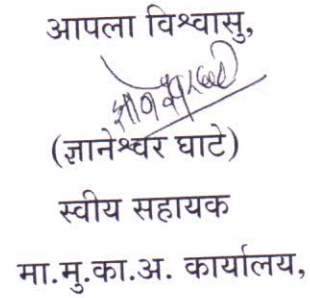 आपला विश्वासु,
(ज्ञानेश्वर घाटे)
स्वीय सहायक
मा.मु.का.अ. कार्यालय,